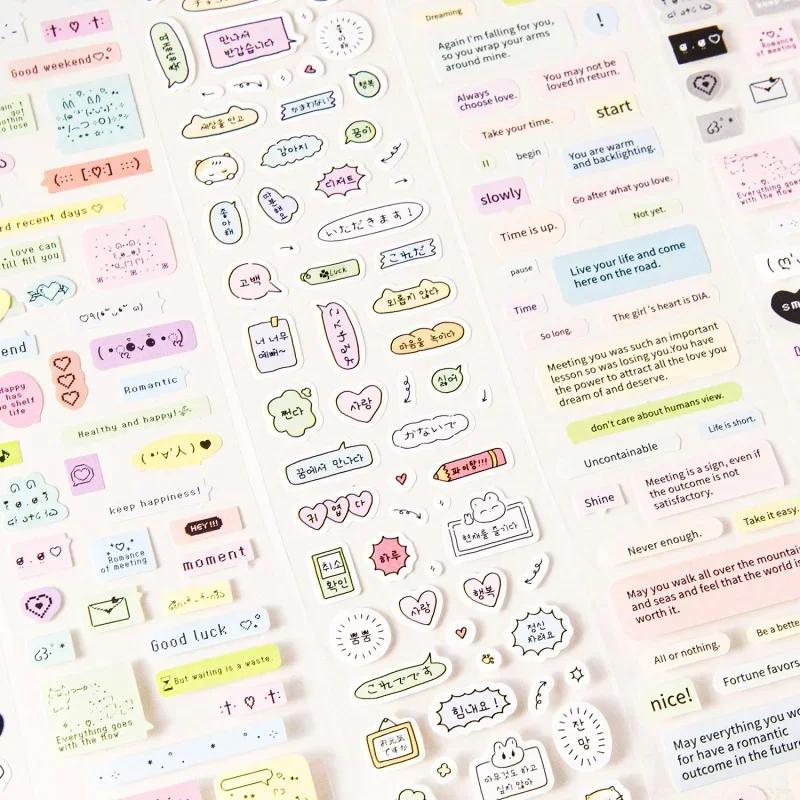 Good weekend
rd recent days
love can
till fill you
end
Happy
has
no shelf
life
Romantic
Healthy and happy!
keep happiness!
HEY!!!
Romance
of meeting
moment
Good luck
But waiting is a waste.
Everything goes
with the flow
만나서
반갑습니다
행복
세상을 안고
かまわない
꿈이
강아지
디저트
좋
아
해
따
분
해
요
いただきます!
고백
Luck
これだ
외롭지 않다
너 너무
예뻐~
마음을 녹이다
쩐다
사랑
싫어
かないで
꿈에서 만나다
파이팅!!!
귀엽다
현재를 즐기다
취소
확인
하루
사랑
행복
뿅뿅
정신
차려요
これでです
힘내요!
お元気
ですか
잔
망
아무것도 하고
싶지 않아
Dreaming
Again I'm falling for you,
so you wrap your arms
around mine.
!
Always
choose love.
You may not be
loved in return.
Take your time.
start
begin
You are warm
and backlighting.
slowly
Go after what you love.
Not yet.
Time is up.
pause
Live your life and come
here on the road.
Time
The girl's heart is DIA.
So long.
Meeting you was such an important
lesson so was losing you.You have
the power to attract all the love you
dream of and deserve.
don't care about humans view.
Life is short.
Uncontainable
Shine
Meeting is a sign, even if
the outcome is not
satisfactory.
Take it easy.
Never enough.
May you walk all over the mountai
and seas and feel that the world is
worth it.
All or nothing.
Be a bette
nice!
Fortune favors
May everything you wo
for have a romantic
outcome in the future
Romance
of meeting
Everything goes
with the flow